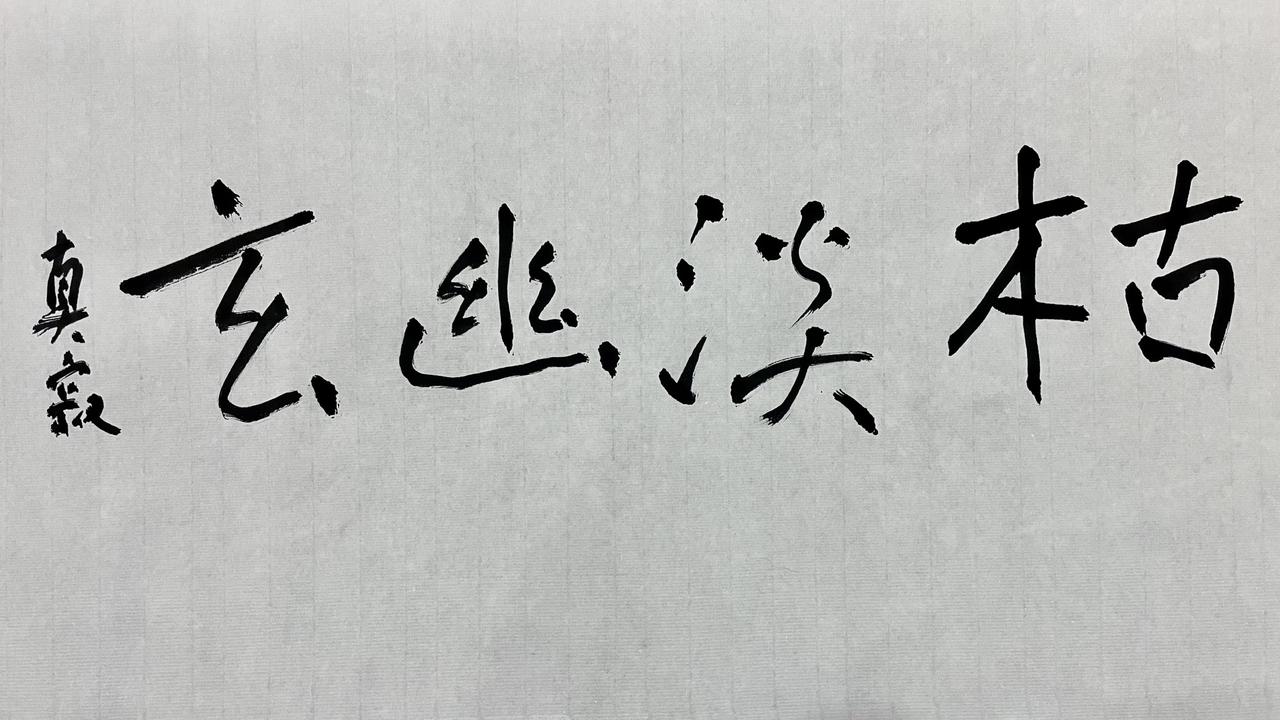 枯淡幽玄
真寂